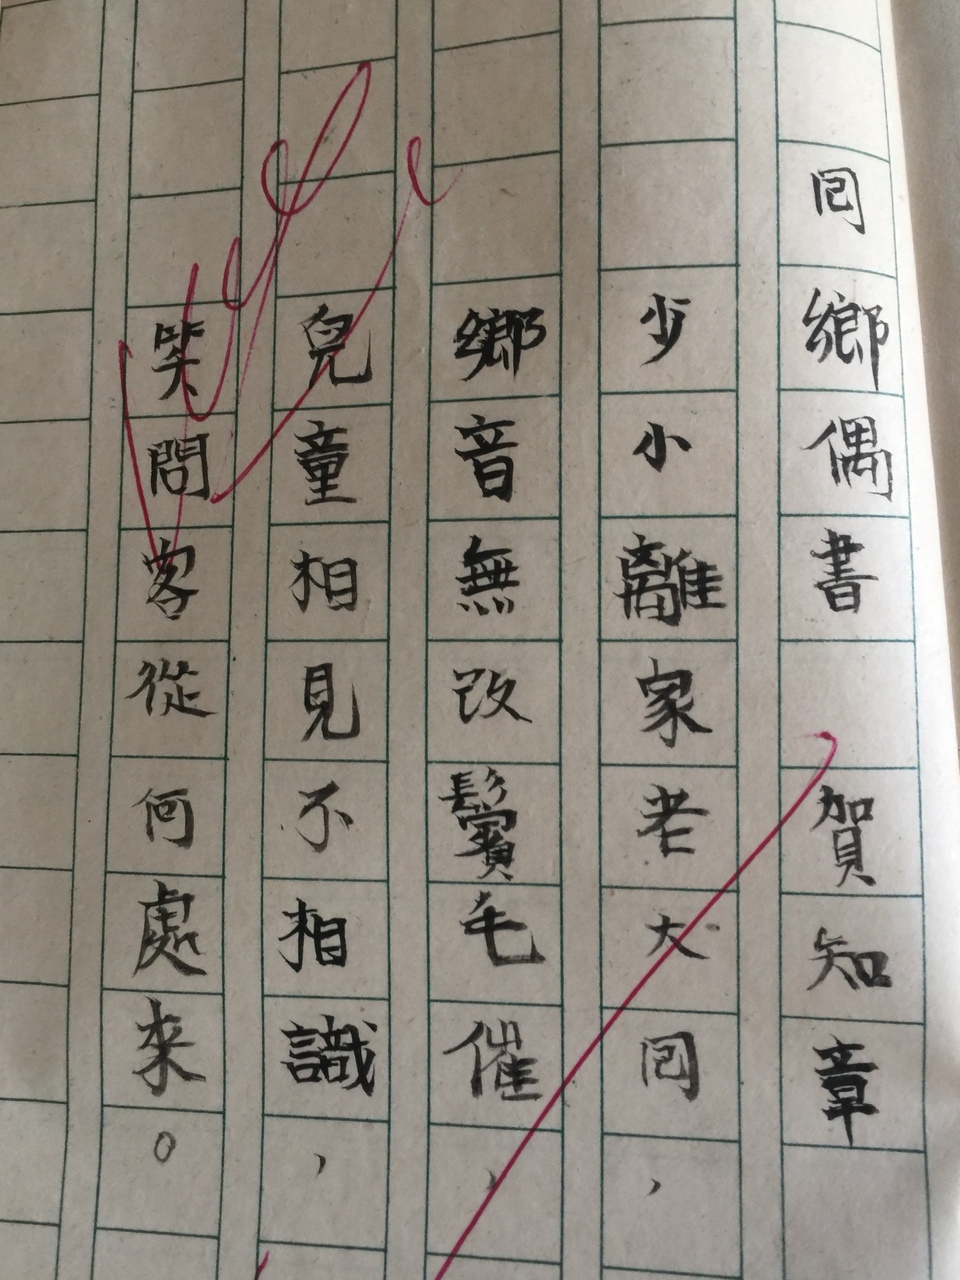 回鄉偶書 賀知章
少小離家老大回，
鄉音無改鬢毛催，
兒童相見不相識，
笑問客從何處來。